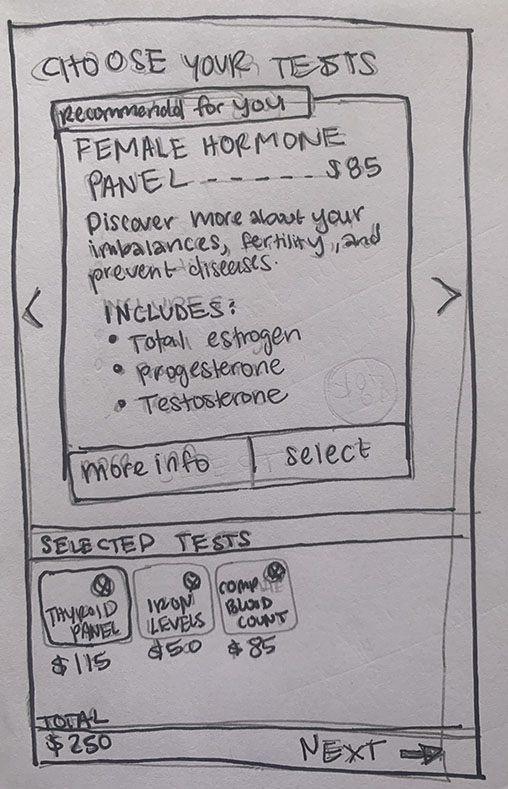 CHOOSE YOUR TESTS
recommended for you
FEMALE HORMONE
PANEL ------ $85
Discover more about your
imbalances, fertility, and
prevent diseases.
INCLUDES:
• Total estrogen
• progesterone
• Testosterone
more info
select
SELECTED TESTS
THYROID
PANEL
$115
IRON
LEVELS
$50
COMPLETE
BLOOD
COUNT
$85
TOTAL
$250
NEXT →